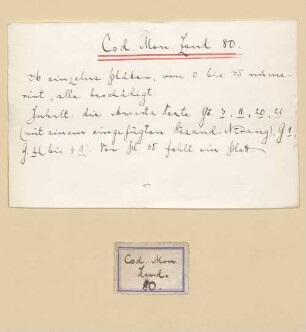 Cod. Mon. Zend 80.
36 einzelne Blätter, von 0 bis 35 nume-
rirt, alle beschädigt.
Inhalt: die Avesta Texte Yt. 3, 11, 20, 21
(mit einem eingefügten Pazand-Nirang), G 1,
G bis Vor Bl. 35 fehlt ein Blatt
Cod. Mon
Zend.
80.